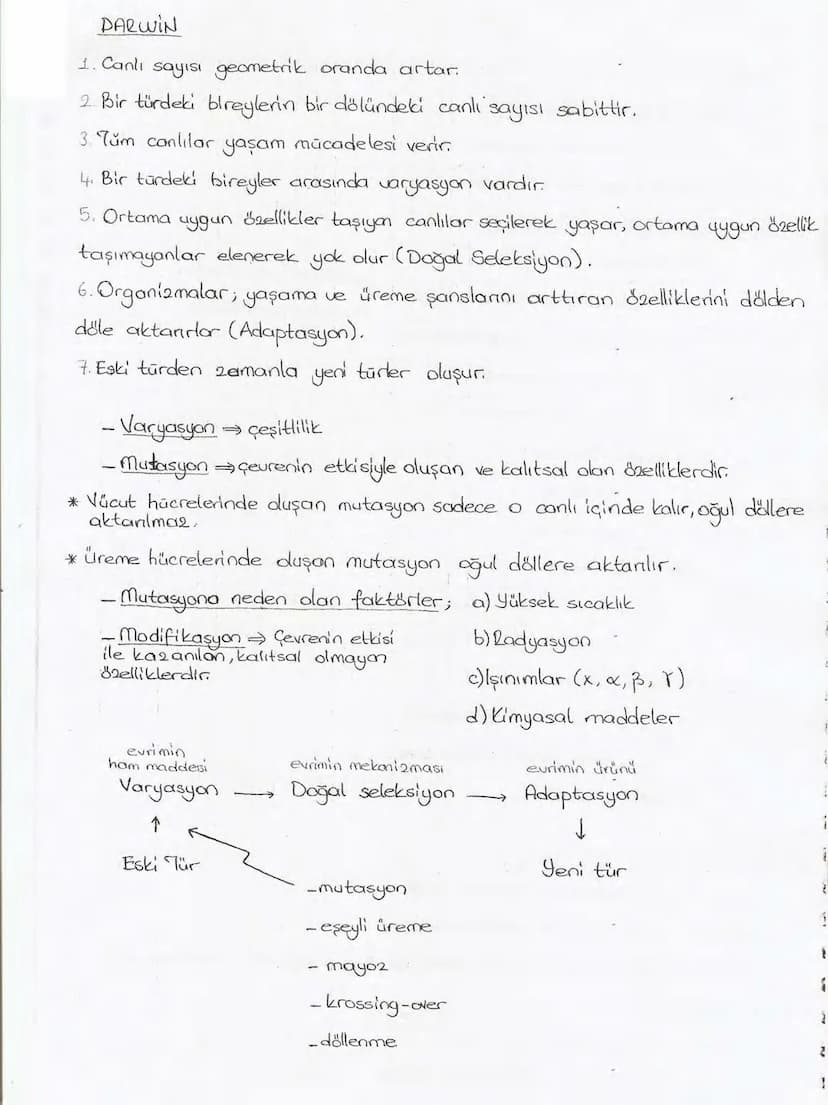 DARWİN
1. Canlı sayısı geometrik oranda artar.
2. Bir türdeki bireylerin bir dölündeki canlı sayısı sabittir.
3. Tüm canlılar yaşam mücadelesi verir.
4. Bir türdeki bireyler arasında varyasyon vardır.
5. Ortama uygun özellikler taşıyan canlılar seçilerek yaşar, ortama uygun özellik
taşımayanlar elenerek yok olur (Doğal Seleksiyon).
6. Organizmalar; yaşama ve üreme şanslarını arttıran özelliklerini dölden
döle aktarırlar (Adaptasyon).
7. Eski türden zamanla yeni türler oluşur.
- Varyasyon ⇒ çeşitlilik
- Mutasyon ⇒ çevrenin etkisiyle oluşan ve kalıtsal olan özelliklerdir.
* Vücut hücrelerinde oluşan mutasyon sadece o canlı içinde kalır, oğul döllere
aktarılmaz.
* Üreme hücrelerinde oluşan mutasyon oğul döllere aktarılır.
- Mutasyona neden olan faktörler; a) Yüksek sıcaklık
b) Radyasyon
c) Işınımlar (x, α, β, γ)
d) Kimyasal maddeler
- Modifikasyon ⇒ Çevrenin etkisi
ile kazanılan, kalıtsal olmayan
özelliklerdir.
evrimin
ham maddesi
evrimin mekanizması
evrimin ürünü
Varyasyon → Doğal seleksiyon → Adaptasyon
↑ ↓
Eski Tür
Yeni tür
- mutasyon
- eşeyli üreme
- mayoz
- krossing-over
- döllenme